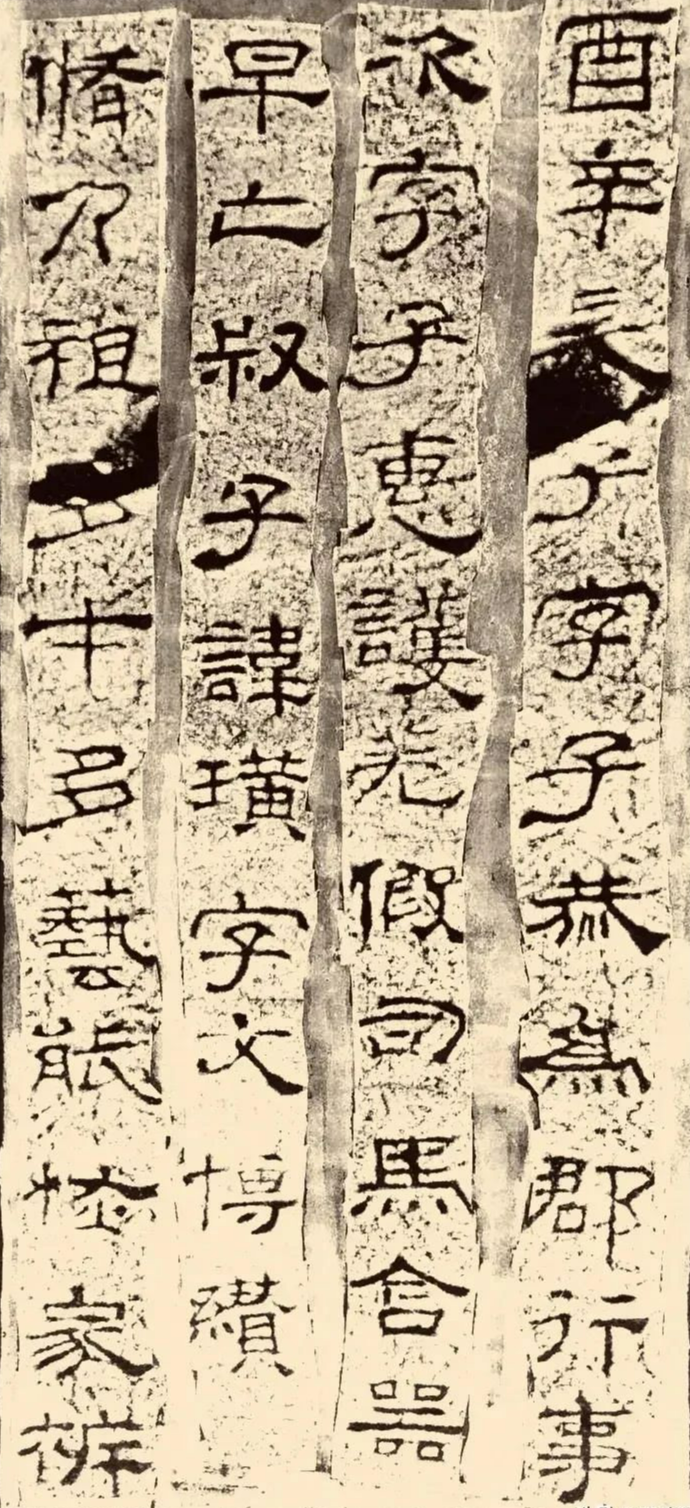 酉卒長子字子恭為郡行事
次字子惠護羌假司馬含器
早亡叔子諱璜字文博纘
脩乃祖多才多藝能恢家祊